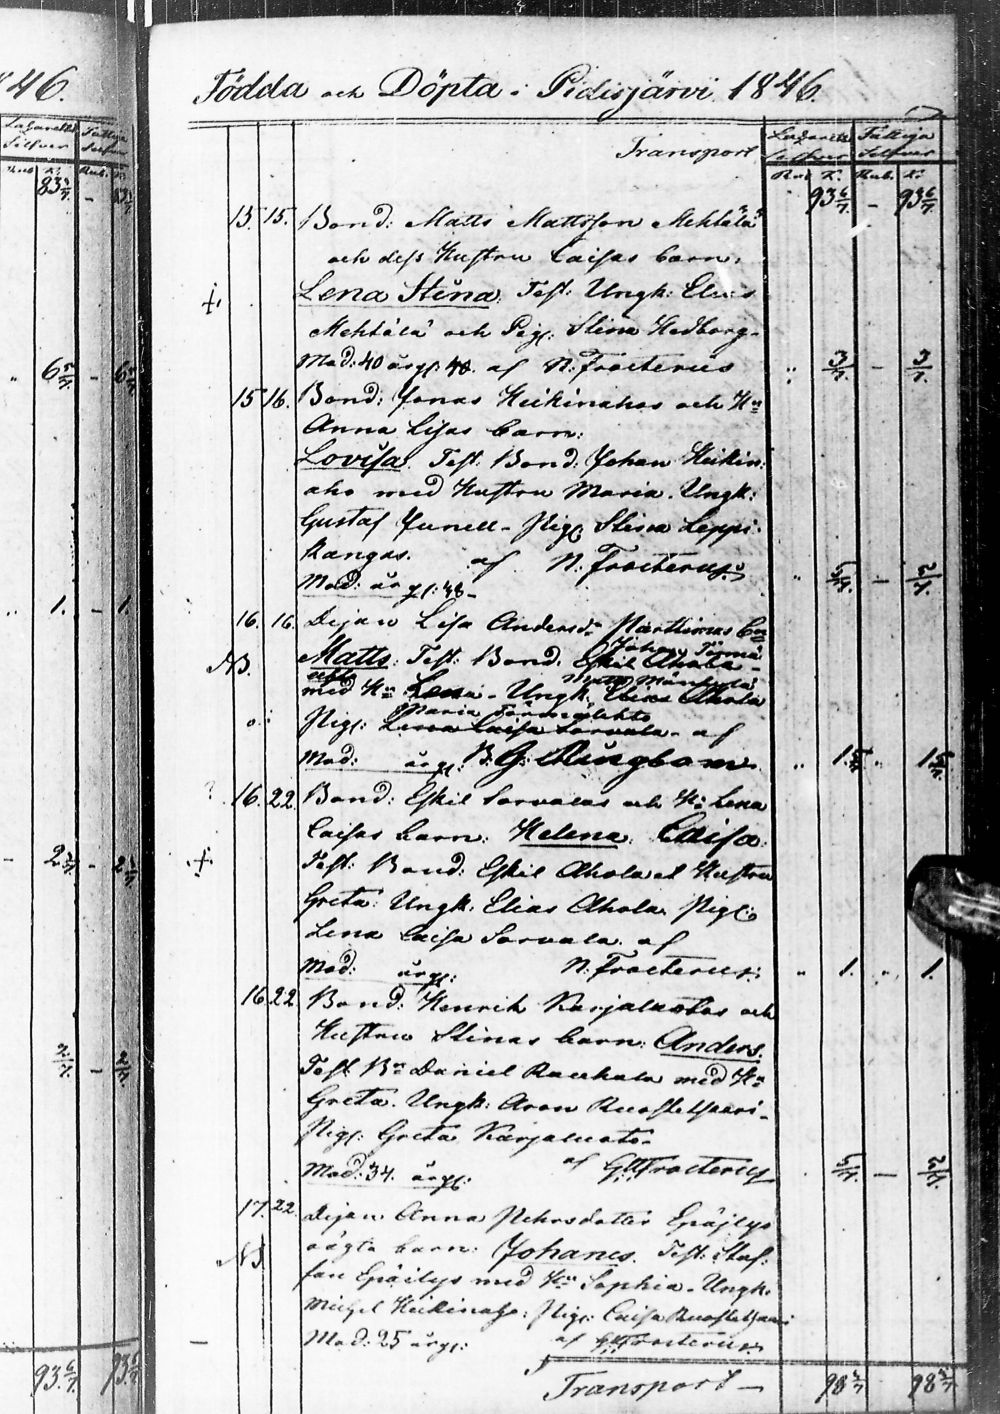 846.
Lazarett Silfver
Fattiga Silfver
Rub. K.
Rub. K.
83 5/7. - 83 5/7
6 5/7. - 6 5/7
1. - 1.
2 5/7 - 2 5/7
2/7. - 2/7
93 6/7. 93 6/7.
Födda och Döpta i Pidisjärvi 1846.
Lazarett Fattiga
Transport
Silfver Silfver
Rub. K. Rub. K.
93 6/7. - 93 6/7.
15. 15. Bond: Matts Mattsson Mehtälä
och dess Hustru Caisas barn:
Lena Stina. Test: Ungk: Elias
Mehtälä och Pig: Stina Hedborg.
Mod: 40 årg: af N: Frosterus 3/7. - 3/7.
15 16. Bond: Jonas Heikinahos och Hu
Anna Lisas barn:
Lovisa. Test. Bond: Johan Heikin:
aho med Hustru Maria. Ungk:
Gustaf Junell - Pig: Stina Leppi:
kangas. af N: Frosterus. 5/7. - 5/7.
Mod: årg: 48 -
16. 16. Pigan Lisa Andersdr Parttimas
Johan Törmä
NB. Matts: Test: Bond. Eskil Ahola -
Matts
med Hu Lena - Ungk. Elias Ahola
Maria Törmälehto
Pig: Lena Caisa Sorvala - af
Mod: årg: 1 5/7. 1 5/7
16. 22 Bond: Eskil Sorvalas och Hu Lena
Caisas barn: Helena Caisa.
Test: Bond: Eskil Ahola Hustru
Greta. Ungk. Elias Ahola. Pig:
Lena Caisa Sorvala. af
Mod: årg: N: Frosterus: 1. 1.
16 22. Bond: Henrik Karjaluotos och
Hustru Stinas barn: Anders.
Test. Bn Daniel Raukala med Hu
Greta. Ungk: Aron Ruostetsaari -
Pig: Greta Karjaluoto -
Mod: 34. årg: af G: Frosterus 5/7. - 5/7.
17. 22. Pigan Anna Pehrsdotter Epäilys
oägta barn: Johanes. Test: Staf:
NB
fan Epäilys med Hu Sophia. Ungk:
Michel Heikinaho: Pig: Caisa Ruostetsaari
Mod: 25 årg: af G: Frosterus:
Transport - 98 98